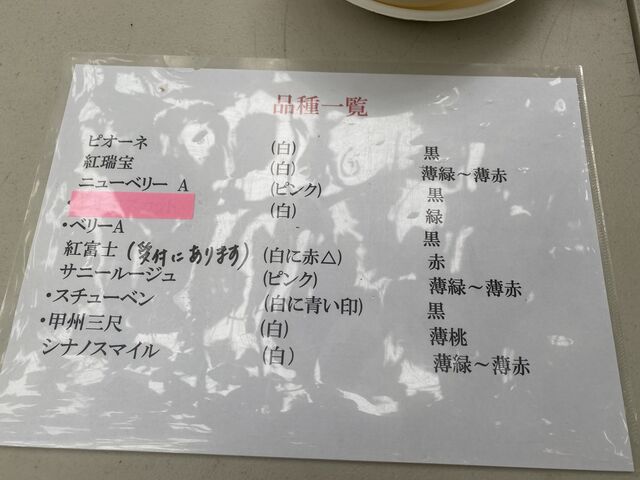 品種一覧
ピオーネ (白) 黒
紅瑞宝 (白) 薄緑～薄赤
ニューベリー A (ピンク) 黒
・ (白) 緑
・ベリーA 黒
紅富士 (受付にあります) (白に赤△) 赤
サニールージュ (ピンク) 薄緑～薄赤
・スチューベン (白に青い印) 黒
・甲州三尺 (白) 薄桃
シナノスマイル (白) 薄緑～薄赤